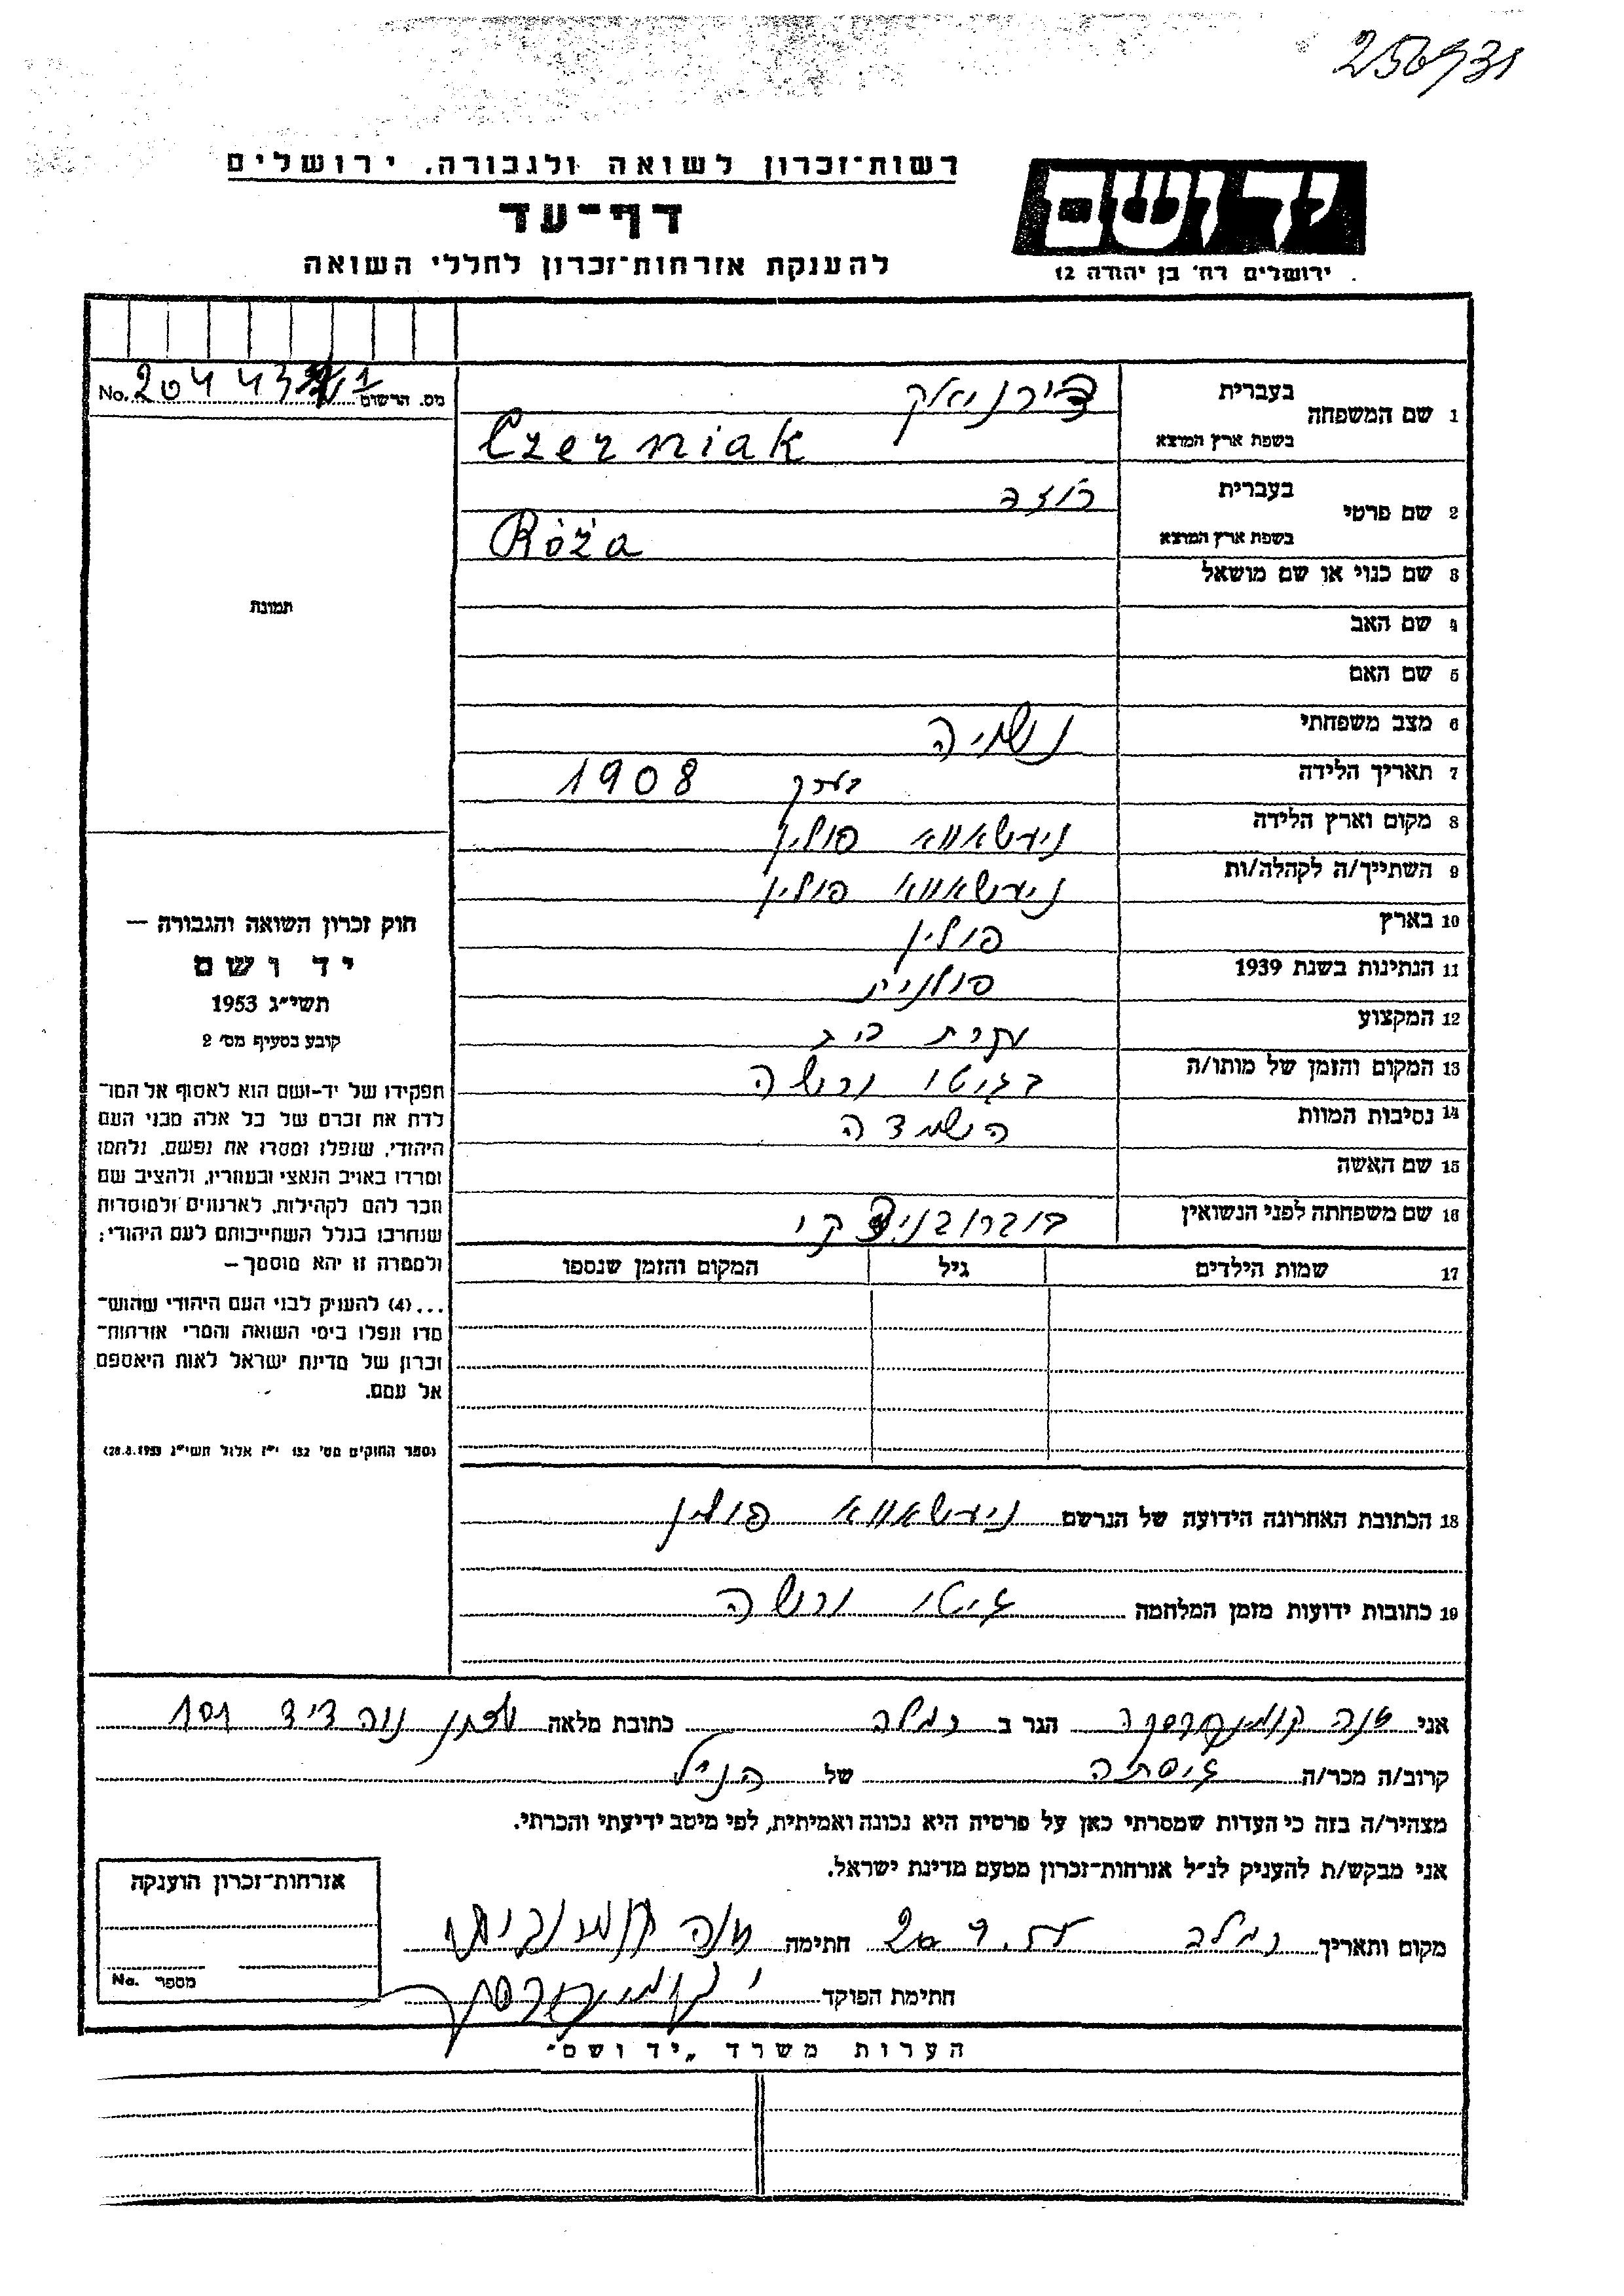 רשות־זכרון לשואה ולגבורה, ירושלים
דף־עד
להענקת אזרחות־זכרון לחללי השואה
יד ושם
ירושלים רח' בן יהודה 12
מס. הרשום No.
1 שם המשפחה בעברית צ'ירניאק
בשפת ארץ המוצא Czerniak
2 שם פרטי בעברית רוזה
בשפת ארץ המוצא Róża
3 שם כנוי או שם מושאל
4 שם האב
5 שם האם
6 מצב משפחתי נשואה
7 תאריך הלידה בערך 1908
8 מקום וארץ הלידה פולין
9 השתייך/ה לקהלה/ות פולין
10 בארץ פולין
11 הנתינות בשנת 1939 פולנית
12 המקצוע עקרת בית
13 המקום והזמן של מותו/ה בגיטו ורשה
14 נסיבות המוות השמדה
15 שם האשה
16 שם משפחתה לפני הנשואין
17 שמות הילדים גיל המקום והזמן שנספו
18 הכתובת האחרונה הידועה של הנרשם פולין
19 כתובות ידועות מזמן המלחמה גיטו ורשה
תמונת
חוק זכרון השואה והגבורה —
יד ושם
תשי"ג 1953
קובע בסעיף מס' 2
תפקידו של יד־ושם הוא לאסוף אל המו־
לדת את זכרם של כל אלה מבני העם
היהודי, שנפלו ומסרו את נפשם, נלחמו
ומרדו באויב הנאצי ובעוזריו, ולהציב שם
וזכר להם לקהילות, לארגונים ולמוסדות
שנחרבו בגלל השתייכותם לעם היהודי;
ולמטרה זו יהא מוסמך —
...(4) להעניק לבני העם היהודי שהוש־
מדו ונפלו בימי השואה והמרי אזרחות־
זכרון של מדינת ישראל לאות היאספם
אל עמם.
(ספר החוקים מס' 132 י"ז אלול תשי"ג 28.8.1953)
אני הגר ב רמלה כתובת מלאה 101
קרוב/ה מכר/ה גיסתה של הנ"ל
מצהיר/ה בזה כי העדות שמסרתי כאן על פרטיה היא נכונה ואמיתית, לפי מיטב ידיעתי והכרתי.
אני מבקש/ת להעניק לנ"ל אזרחות־זכרון מטעם מדינת ישראל.
מקום ותאריך רמלה חתימה
חתימת הפוקד
אזרחות־זכרון הוענקה
מספר No.
הערות משרד „יד ושם"